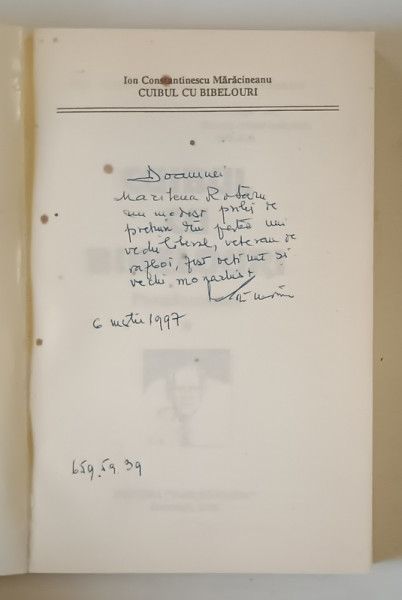 Ion Constantinescu Mărăcineanu
CUIBUL CU BIBELOURI
Doamnei
Marilena Rotaru
un modest prilej de
prețuire din partea unui
vechi liberal, veteran de
război, fost deținut și
vechi monarhist
6 martie 1997
659.59.39